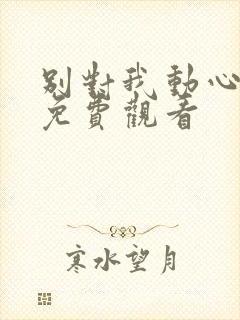 別對我動心
免費觀看
寒水望月